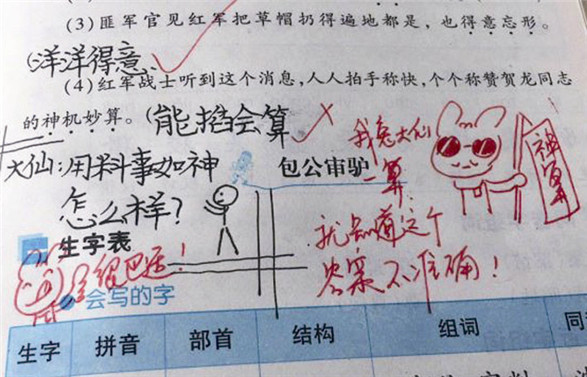 (3)匪军官见红军把草帽扔得遍地都是,也得意忘形。
(洋洋得意)
(4)红军战士听到这个消息,人人拍手称快,个个称赞贺龙同志
的神机妙算。(能掐会算)
大仙:用料事如神
怎么样?
包公审驴
我兔大仙
一算
就知道这个
答案不准确!
神算
生字表
会写的字
生字 拼音 部首 结构 组词 同